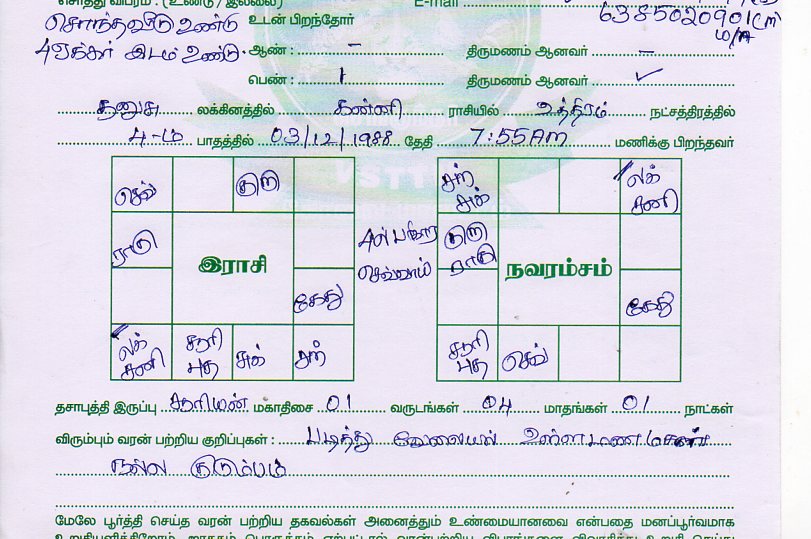 சொத்து விபரம் : (உண்டு / இல்லை)
E-mail
சொந்தவீடு உண்டு உடன் பிறந்தோர்
6385020901
4 ஏக்கர் இடம் உண்டு. ஆண் : - திருமணம் ஆனவர் -
பெண் : 1 திருமணம் ஆனவர் ✓
தனுசு லக்கினத்தில் கன்னி ராசியில் உத்திரம் நட்சத்திரத்தில்
4-ம் பாதத்தில் 03/12/1988 தேதி 7:55AM மணிக்கு பிறந்தவர்
செவ் குரு
ராகு
இராசி
கேது
லக் சனி
சூரி புத
சுக்
சந்
4ல் பரிகார செவ்வாய்
சந் சுக்
லக் சனி
குரு ராகு
நவரம்சம்
கேது
சூரி புத
செவ்
தசாபுத்தி இருப்பு சூரியன் மகாதிசை 01 வருடங்கள் 04 மாதங்கள் 01 நாட்கள்
விரும்பும் வரன் பற்றிய குறிப்புகள் : படித்து வேலையில் உள்ள மணமகன்
நல்ல குடும்பம்
மேலே பூர்த்தி செய்த வரன் பற்றிய தகவல்கள் அனைத்தும் உண்மையானவை என்பதை மனப்பூர்வமாக